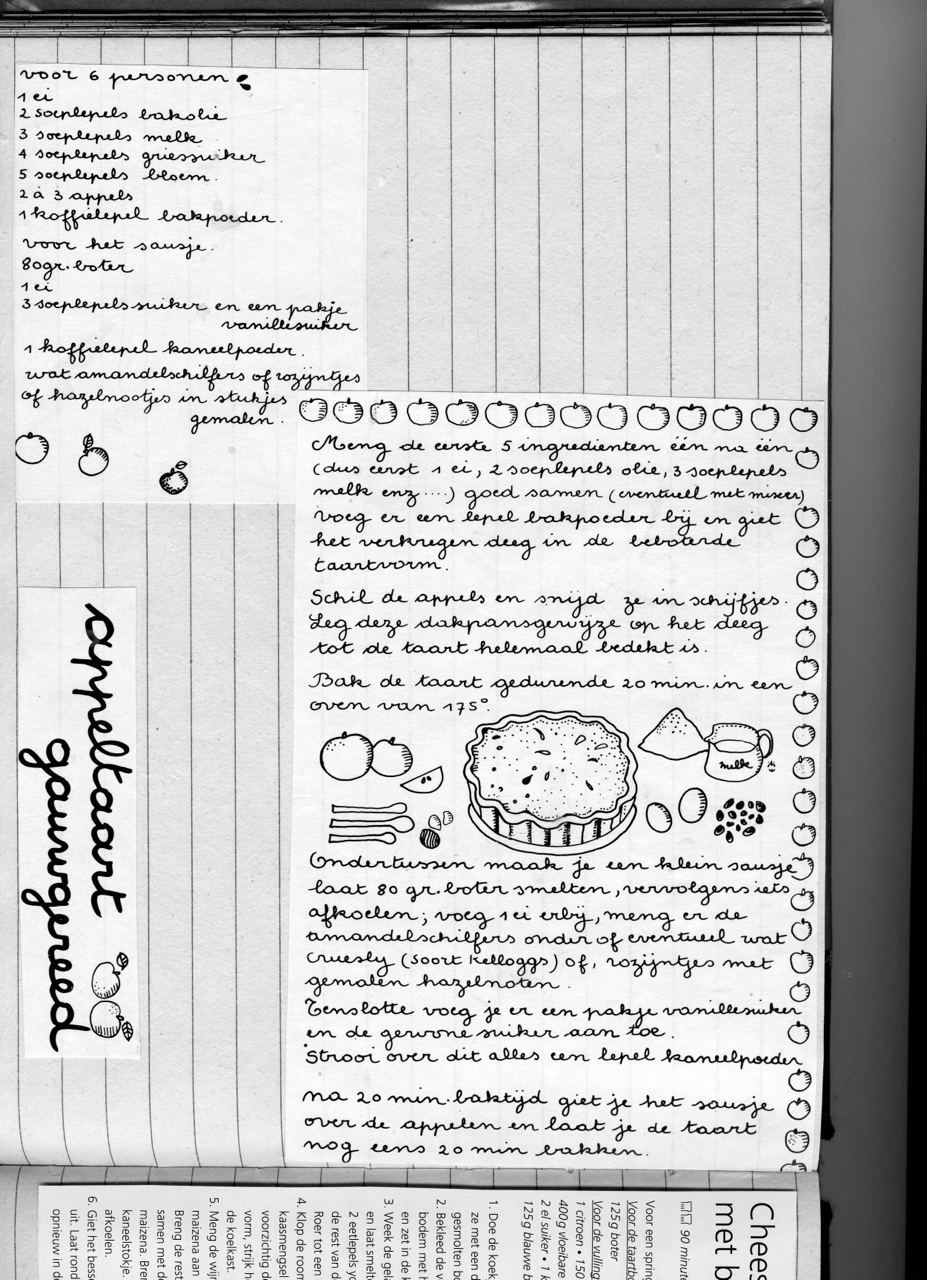 voor 6 personen
1 ei
2 soeplepels bakolie
3 soeplepels melk
4 soeplepels griessuiker
5 soeplepels bloem.
2 à 3 appels
1 koffielepel bakpoeder.
voor het sausje.
80gr. boter
1 ei
3 soeplepels suiker en een pakje
vanillesuiker
1 koffielepel kaneelpoeder.
wat amandelschilfers of rozijntjes
of hazelnootjes in stukjes
gemalen.
Meng de eerste 5 ingredienten één na één
(dus eerst 1 ei, 2 soeplepels olie, 3 soeplepels
melk enz ....) goed samen (eventueel met mixer)
voeg er een lepel bakpoeder bij en giet
het verkregen deeg in de beboterde
taartvorm.
Schil de appels en snijd ze in schijfjes.
Leg deze dakpansgewijze op het deeg
tot de taart helemaal bedekt is.
Bak de taart gedurende 20 min. in een
oven van 175°.
melk
Ondertussen maak je een klein sausje
laat 80 gr. boter smelten, vervolgens iets
afkoelen; voeg 1 ei erbij, meng er de
amandelschilfers onder of eventueel wat
cruesly (soort Kelloggs) of, rozijntjes met
gemalen hazelnoten.
Tenslotte voeg je er een pakje vanillesuiker
en de gewone suiker aan toe.
Strooi over dit alles een lepel kaneelpoeder
na 20 min. baktijd giet je het sausje
over de appelen en laat je de taart
nog eens 20 min bakken.
appeltaart
gauwgereed
Chees
met b
90 minute
Voor een spring
Voor de taartbo
125 g boter
Voor de vulling
1 citroen • 150
400 g vloeibare
2 el suiker • 1 k
125 g blauwe b
1. Doe de koek
ze met een d
gesmolten bo
2. Bekleed de v
bodem met h
en zet in de k
3. Week de gela
en laat smelt
2 eetlepels yo
de rest van d
Roer tot een
4. Klop de room
kaasmengsel
voorzichtig d
vorm, strijk h
de koelkast.
5. Meng de wijn
maizena aan
Breng de rest
samen met d
maizena. Bren
kaneelstokje.
afkoelen.
6. Giet het besse
uit. Laat rond
opnieuw in de